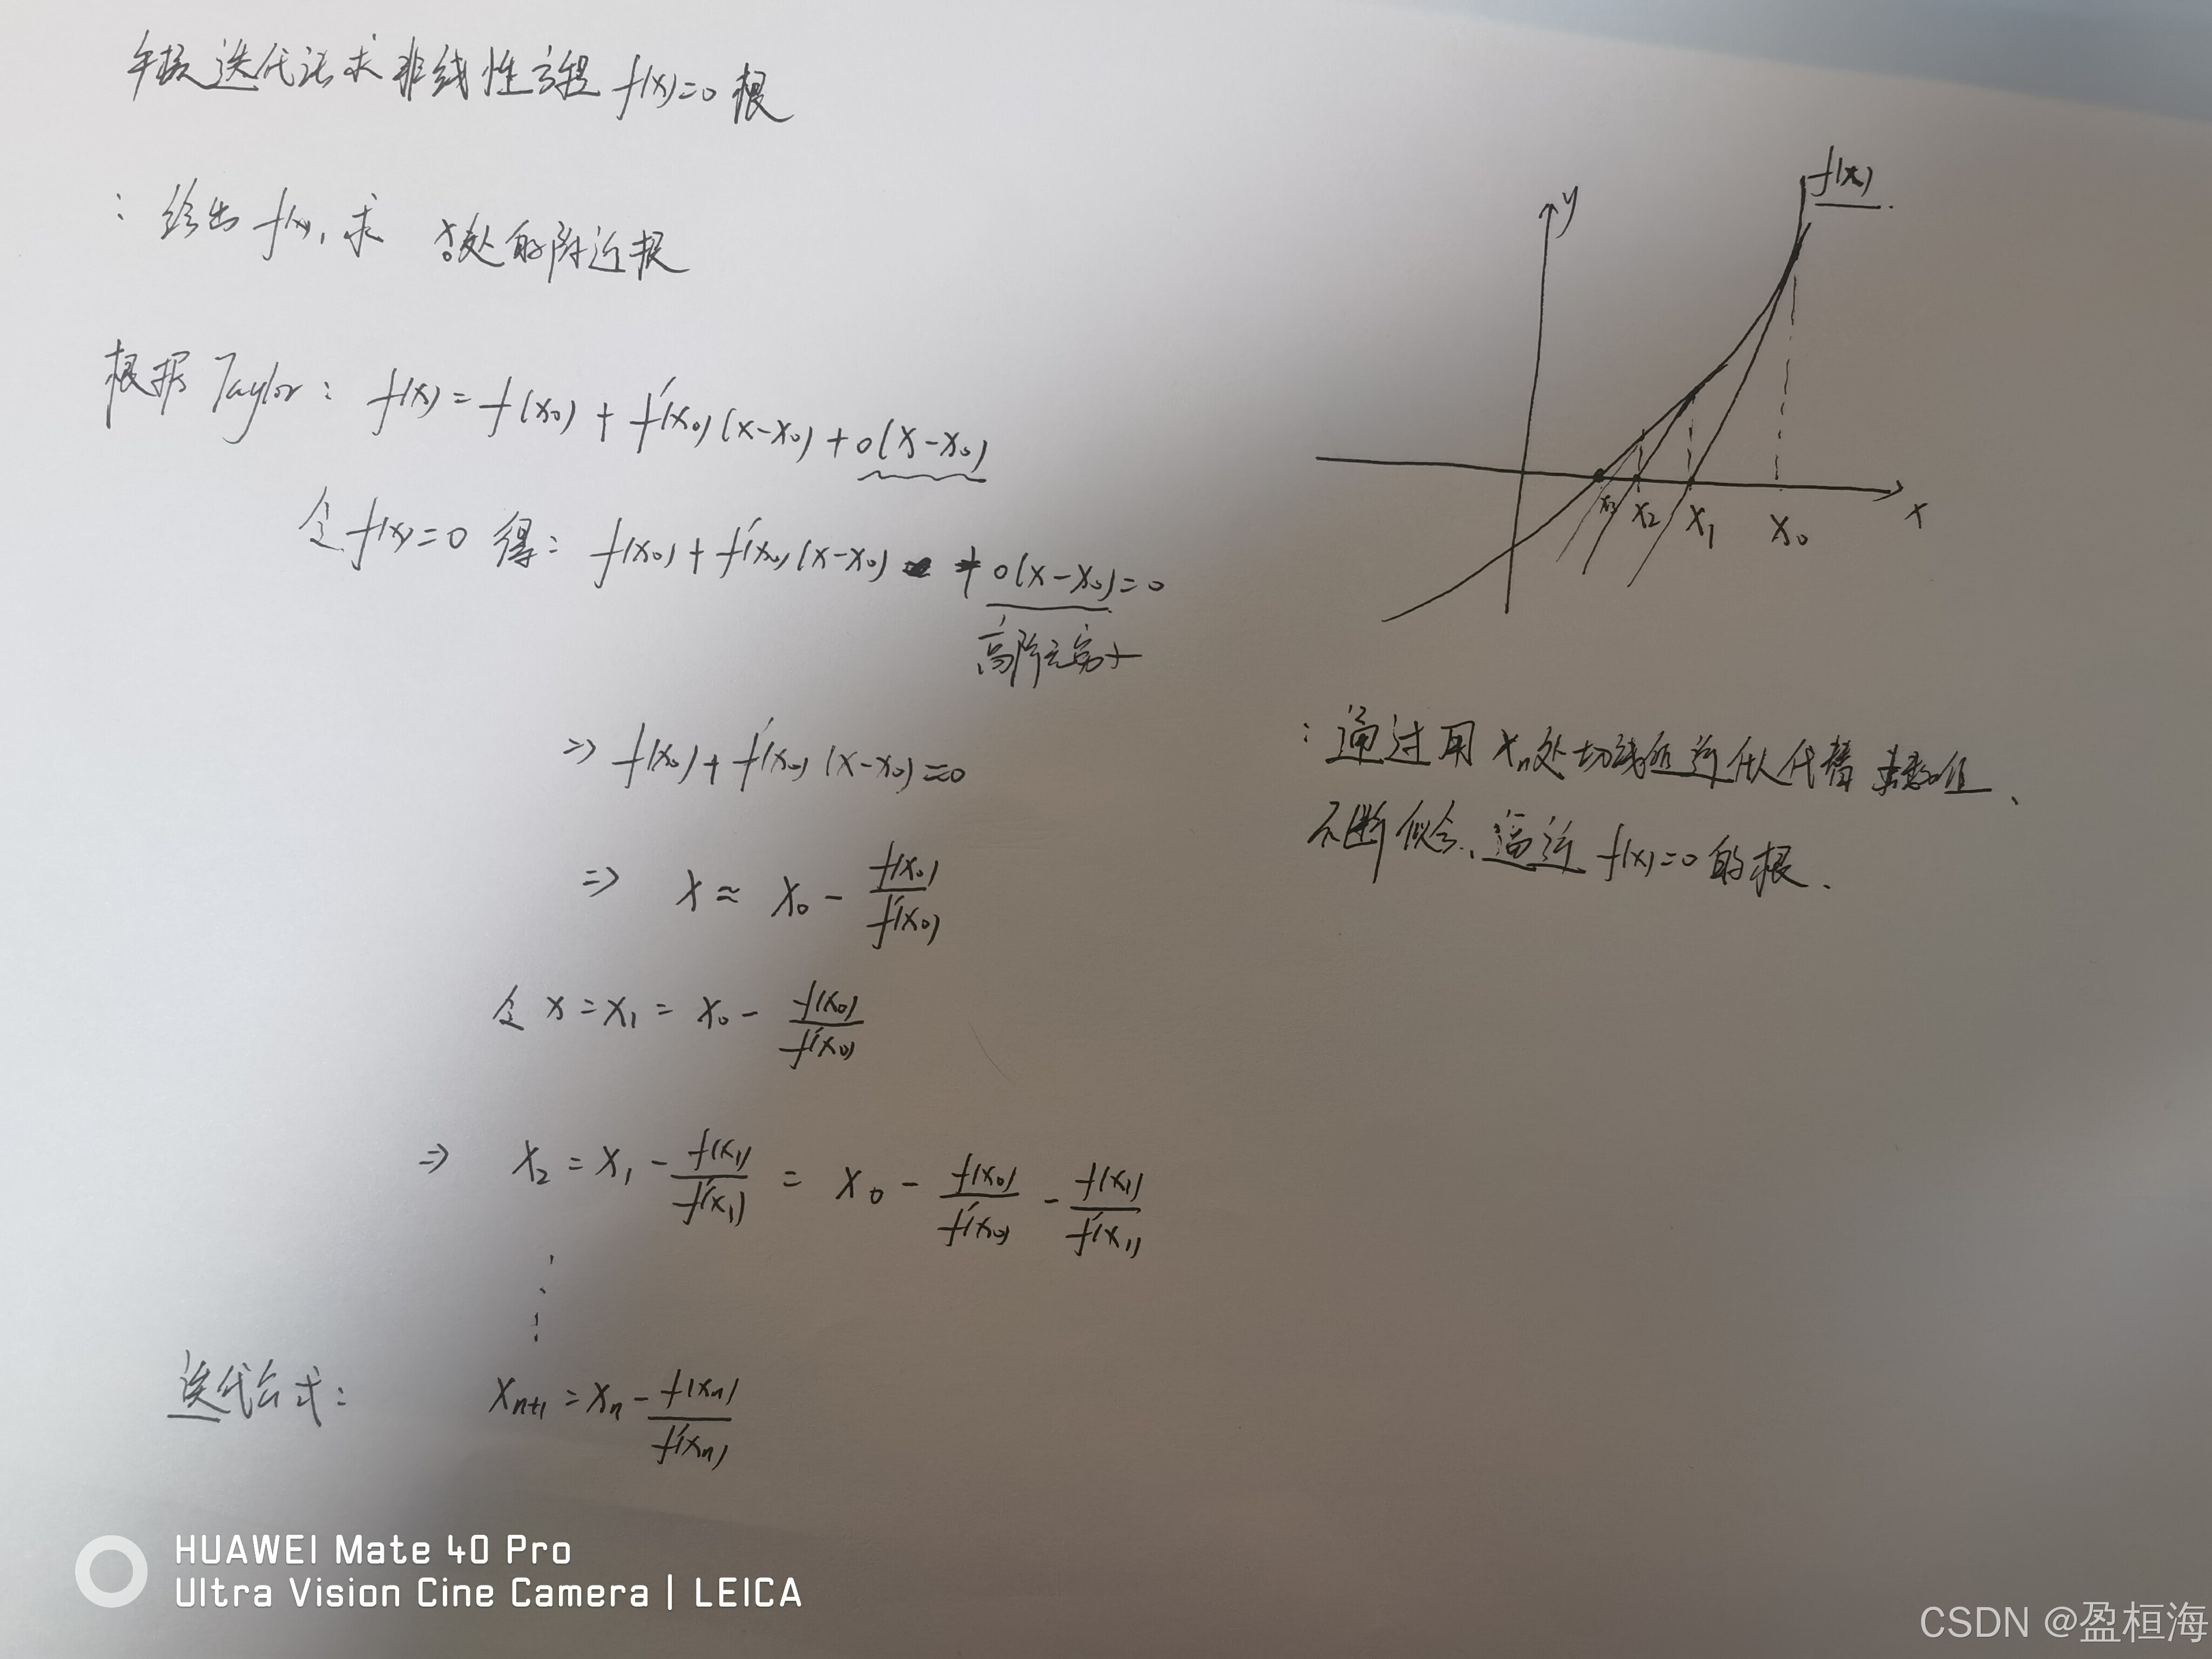 牛顿迭代法求非线性方程 f(x)=0 根
: 给出 f(x), 求 x₀处的附近根
根据 Taylor: f(x) = f(x₀) + f'(x₀)(x-x₀) + o(x-x₀)
令 f(x)=0 得: f(x₀) + f'(x₀)(x-x₀) + o(x-x₀) = 0
高阶无穷小
⇒ f(x₀) + f'(x₀)(x-x₀) ≈ 0
⇒ x ≈ x₀ - f(x₀)/f'(x₀)
令 x = x₁ = x₀ - f(x₀)/f'(x₀)
⇒ x₂ = x₁ - f(x₁)/f'(x₁) = x₀ - f(x₀)/f'(x₀) - f(x₁)/f'(x₁)
迭代公式: xₙ₊₁ = xₙ - f(xₙ)/f'(xₙ)
y
f(x)
x₃ x₂ x₁ x₀ x
: 通过用 xₙ处切线值近似代替函数值、
不断拟合、逼近 f(x)=0 的根.
HUAWEI Mate 40 Pro
Ultra Vision Cine Camera | LEICA
CSDN @盈桓海